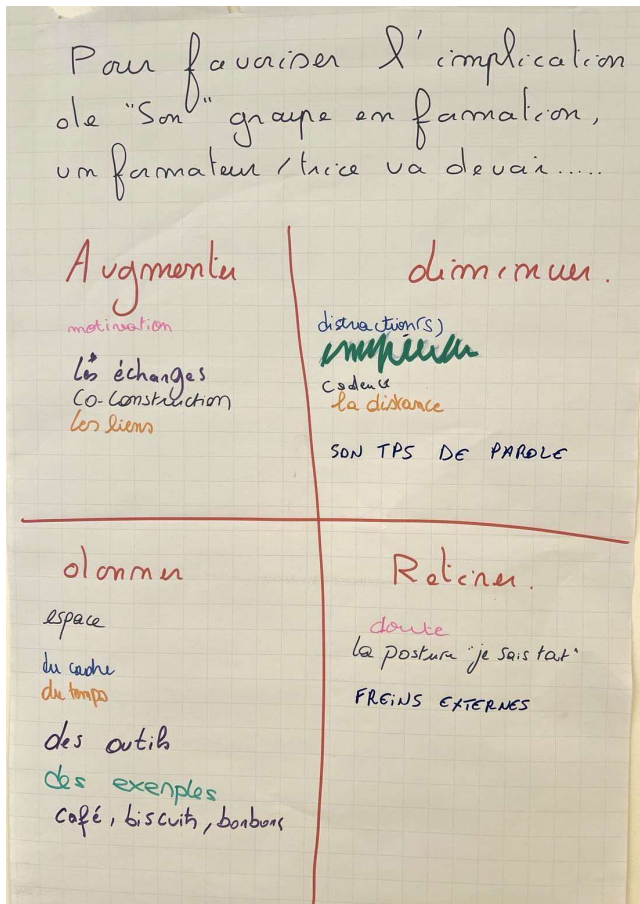 Pour favoriser l'implication
de "Son" groupe en formation,
un formateur / trice va devoir.....
Augmenter
motivation
les échanges
co-construction
les liens
diminuer.
distraction(s)
cadence
la distance
SON TPS DE PAROLE
donner
espace
du cadre
du temps
des outils
des exemples
café, biscuits, bonbons
Retirer.
doute
la posture "je sais tout"
FREINS EXTERNES